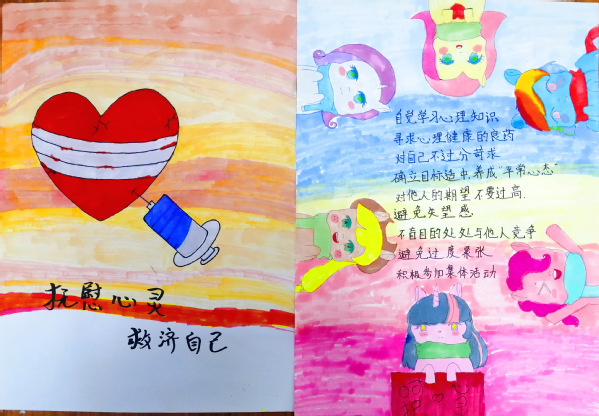 抚慰心灵
救济自己
自觉学习心理知识
寻求心理健康的良药
对自己不过分苛求
确立目标适中,养成"平常心态"
对他人的期望不要过高.
避免失望感
不盲目的处处与他人竞争
避免过度紧张
积极参加集体活动